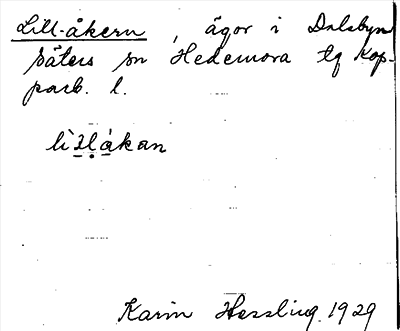 Lill-åkern, ägor i Dalsbyn
Säters sn Hedemora tg Kop-
parb. l.
lìl̠l̠å̠kan
Karin Hessling. 1929